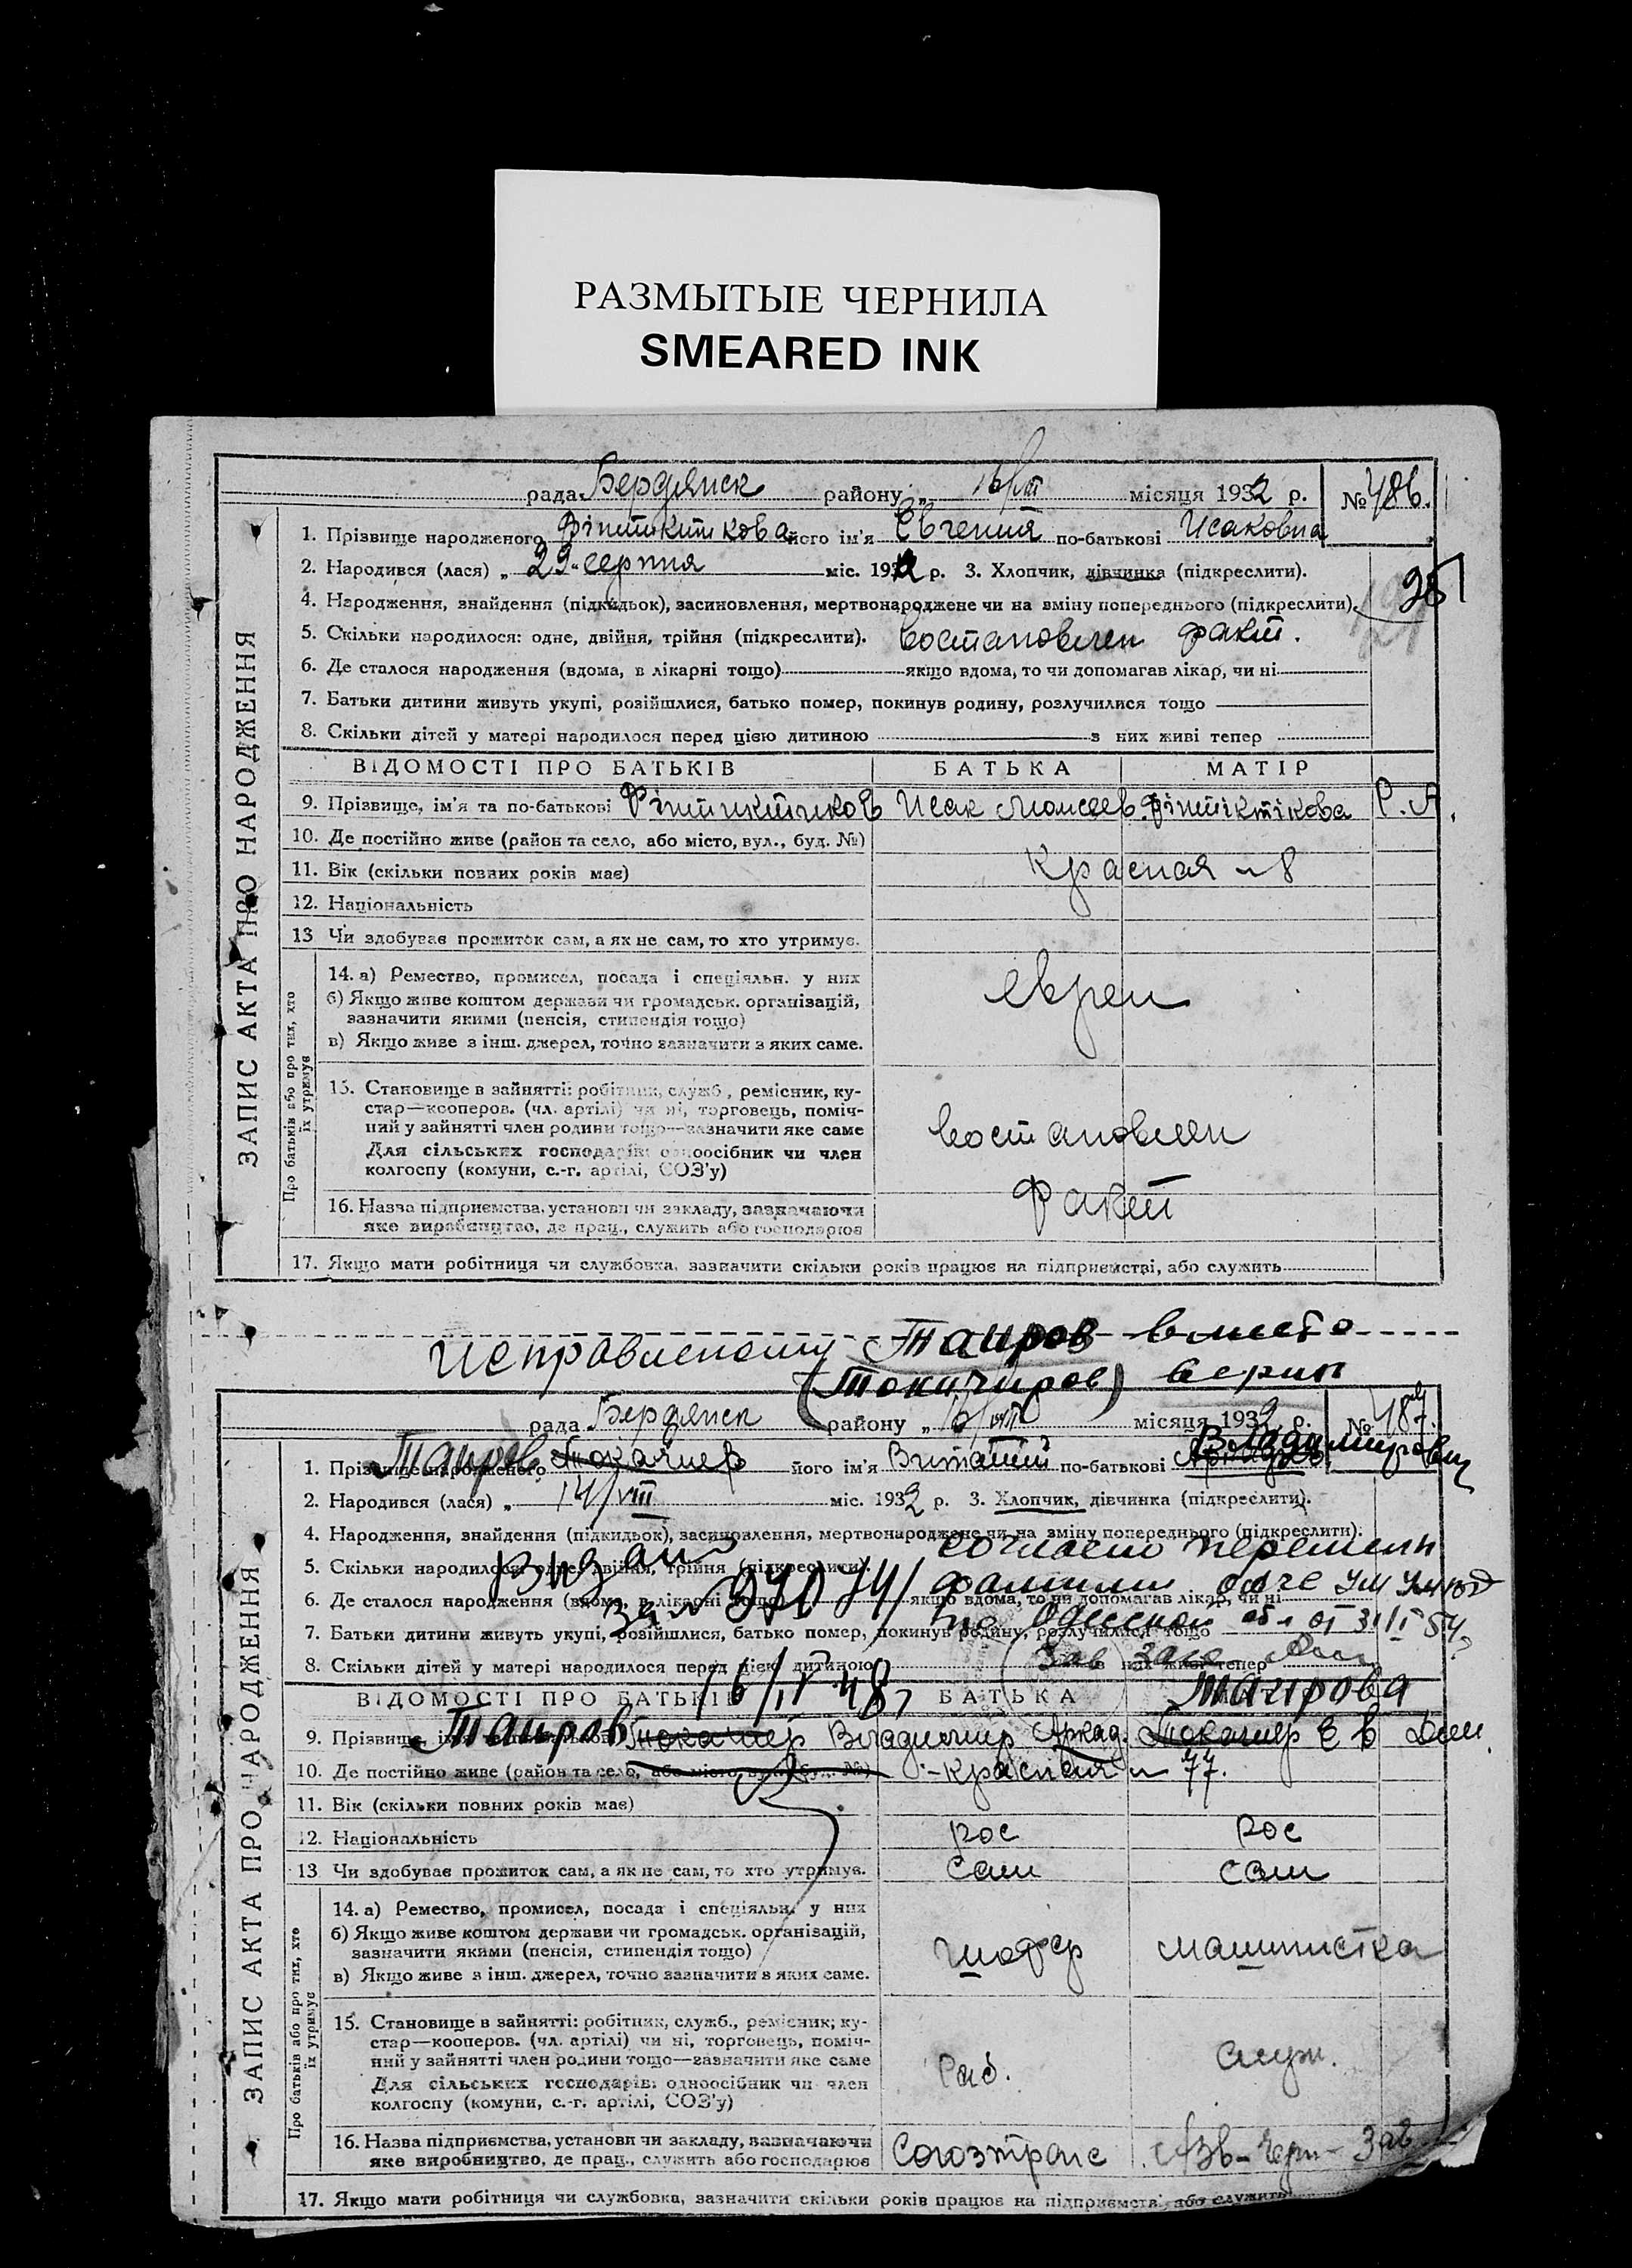 РАЗМЫТЫЕ ЧЕРНИЛА
SMEARED INK
рада Бердянск району „ 16/VIII місяця 1932 р. № 486.
1. Прізвище народженого його ім'я Евгения по-батькові Исаковна
2. Народився (лася) „ 29 серпня міс. 193 р. 3. Хлопчик, дівчинка (підкреслити).
4. Народження, знайдення (підкидьок), засиновлення, мертвонароджене чи на зміну попереднього (підкреслити).
5. Скільки народилося: одне, двійня, трійня (підкреслити). Востановлен факт.
6. Де сталося народження (вдома, в лікарні тощо) якщо вдома, то чи допомагав лікар, чи ні
7. Батьки дитини живуть укупі, розійшлися, батько помер, покинув родину, розлучилися тощо
8. Скільки дітей у матері народилося перед цією дитиною з них живі тепер
ВІДОМОСТІ ПРО БАТЬКІВ БАТЬКА МАТІР
9. Прізвище, ім'я та по-батькові Исак Моисеев. Р. А.
10. Де постійно живе (район та село, або місто, вул., буд. №)
Красная 8
11. Вік (скільки повних років має)
12. Національність
13 Чи здобуває прожиток сам, а як не сам, то хто утримує.
14. а) Ремество, промисел, посада і спеціяльн. у них
б) Якщо живе коштом держави чи громадськ. організацій,
зазначити якими (пенсія, стипендія тощо)
евреи
в) Якщо живе з інш. джерел, точно зазначити з яких саме.
15. Становище в зайнятті: робітник, служб., ремісник, ку-
стар—кооперов. (чл. артілі) чи ні, торговець, поміч-
ний у зайнятті член родини тощо—зазначити яке саме
Востановлен
Для сільських господарів: одноосібник чи член
колгоспу (комуни, с.-г. артілі, СОЗ'у)
16. Назва підприємства, установи чи закладу, зазначаючи
яке виробництво, де прац., служить або господарює
факт
17. Якщо мати робітниця чи службовка, зазначити скільки років працює на підприємстві, або служить
ЗАПИС АКТА ПРО НАРОДЖЕННЯ
Про батьків або про тих, хто
їх утримує
Исправленому Таиров вместо
рада Бердянск району „ 16/VIII місяця 1932 р. № 487.
1. Прізвище народженого Таиров його ім'я Виталий по-батькові Владимирович
2. Народився (лася) „ 14/VIII міс. 1932 р. 3. Хлопчик, дівчинка (підкреслити).
4. Народження, знайдення (підкидьок), засиновлення, мертвонароджене чи на зміну попереднього (підкреслити).
согласно перемени
5. Скільки народилося: одне, двійня, трійня (підкреслити).
фамилии
6. Де сталося народження (вдома, в лікарні тощо) якщо вдома, то чи допомагав лікар, чи ні
по Одесской обл от
7. Батьки дитини живуть укупі, розійшлися, батько помер, покинув родину, розлучилися тощо
8. Скільки дітей у матері народилося перед цією дитиною з них живі тепер
Зав загс
16/IV 48
ВІДОМОСТІ ПРО БАТЬКІВ БАТЬКА
Таирова
9. Прізвище, ім'я та по-батькові Таиров Владимир Аркад. Е В
10. Де постійно живе (район та село, або місто, вул., буд. №) Красная 77.
11. Вік (скільки повних років має)
12. Національність рос рос
13 Чи здобуває прожиток сам, а як не сам, то хто утримує. сам сам
14. а) Ремество, промисел, посада і спеціяльн. у них
б) Якщо живе коштом держави чи громадськ. організацій,
зазначити якими (пенсія, стипендія тощо)
шофер машинистка
в) Якщо живе з інш. джерел, точно зазначити з яких саме.
15. Становище в зайнятті: робітник, служб., ремісник, ку-
стар—кооперов. (чл. артілі) чи ні, торговець, поміч-
ний у зайнятті член родини тощо—зазначити яке саме
Раб. служ.
Для сільських господарів: одноосібник чи член
колгоспу (комуни, с.-г. артілі, СОЗ'у)
16. Назва підприємства, установи чи закладу, зазначаючи
яке виробництво, де прац., служить або господарює
Союзтранс Азв-Черн-Зав
17. Якщо мати робітниця чи службовка, зазначити скільки років працює на підприємств або служить
ЗАПИС АКТА ПРО НАРОДЖЕННЯ
Про батьків або про тих, хто
їх утримує